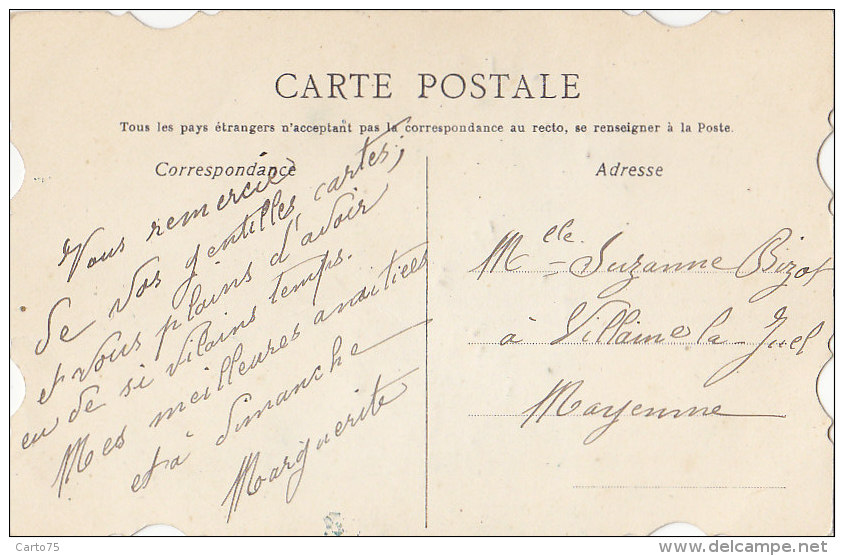 CARTE POSTALE
Tous les pays étrangers n'acceptent pas la correspondance au recto, se renseigner à la Poste.
Correspondance
Vous remercie
de vos gentilles cartes,
et vous plains d'avoir
eu de si vilains temps.
Mes meilleures amitiées
et à dimanche
Marguerite
Adresse
Mlle Suzanne Bizot
à Villaine la-Juel
Mayenne
Carto75
http://www.delcampe.net